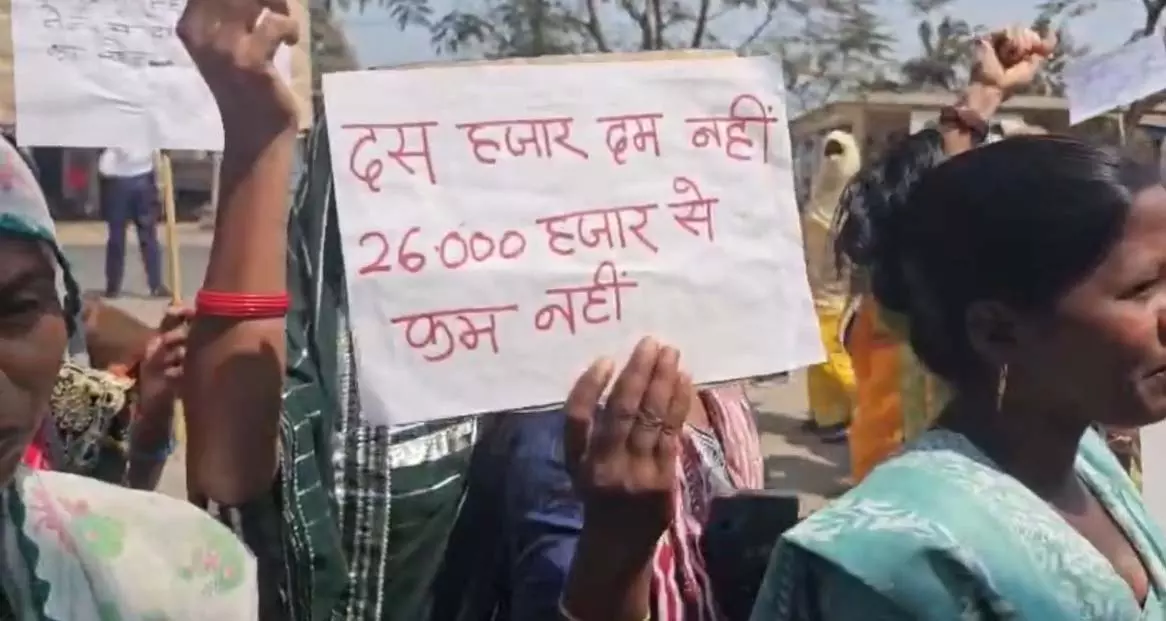 दस हजार दम नहीं
26.000 हजार से
कम नहीं